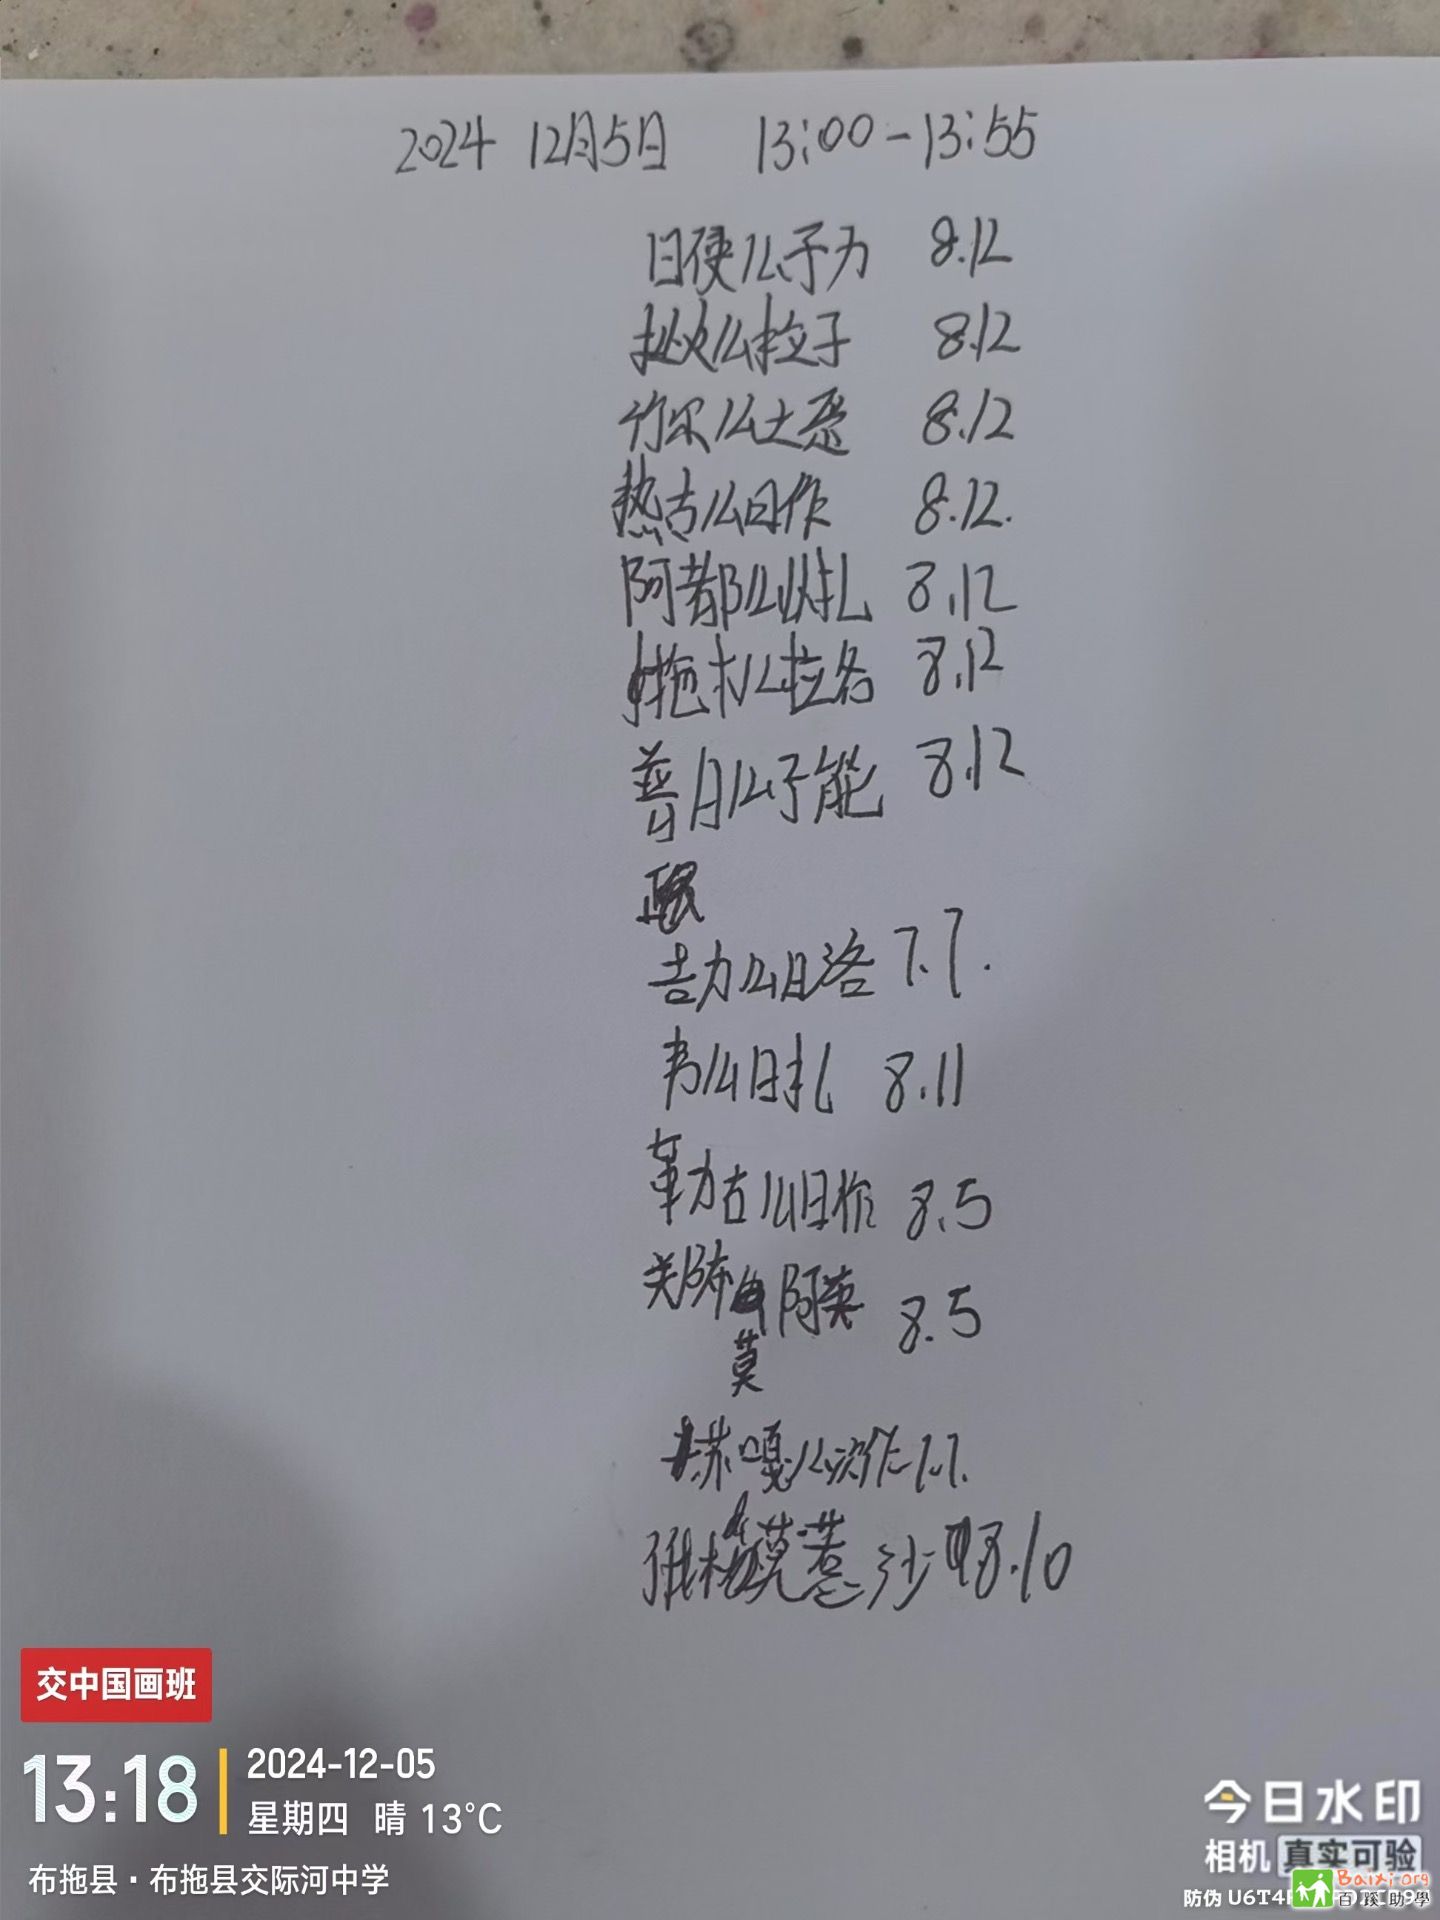 2024 12月5日 13:00-13:55
日使么子力 8.12
么拉子 8.12
竹尔么土惹 8.12
热古么日作 8.12.
阿都么扎 8.12
拖木么拉各 8.12
普日么子能 8.12
吉力么日洛 7.7.
韦么日扎 8.11
勒古么日作 8.5
阿英 8.5
莫
苏嘎么次作 7.7.
莫惹沙 8.10
交中国画班
13:18
2024-12-05
星期四 晴 13°C
布拖县·布拖县交际河中学
今日水印
相机 真实可验
防伪 U6T4
Baixi.org
百蹊助學